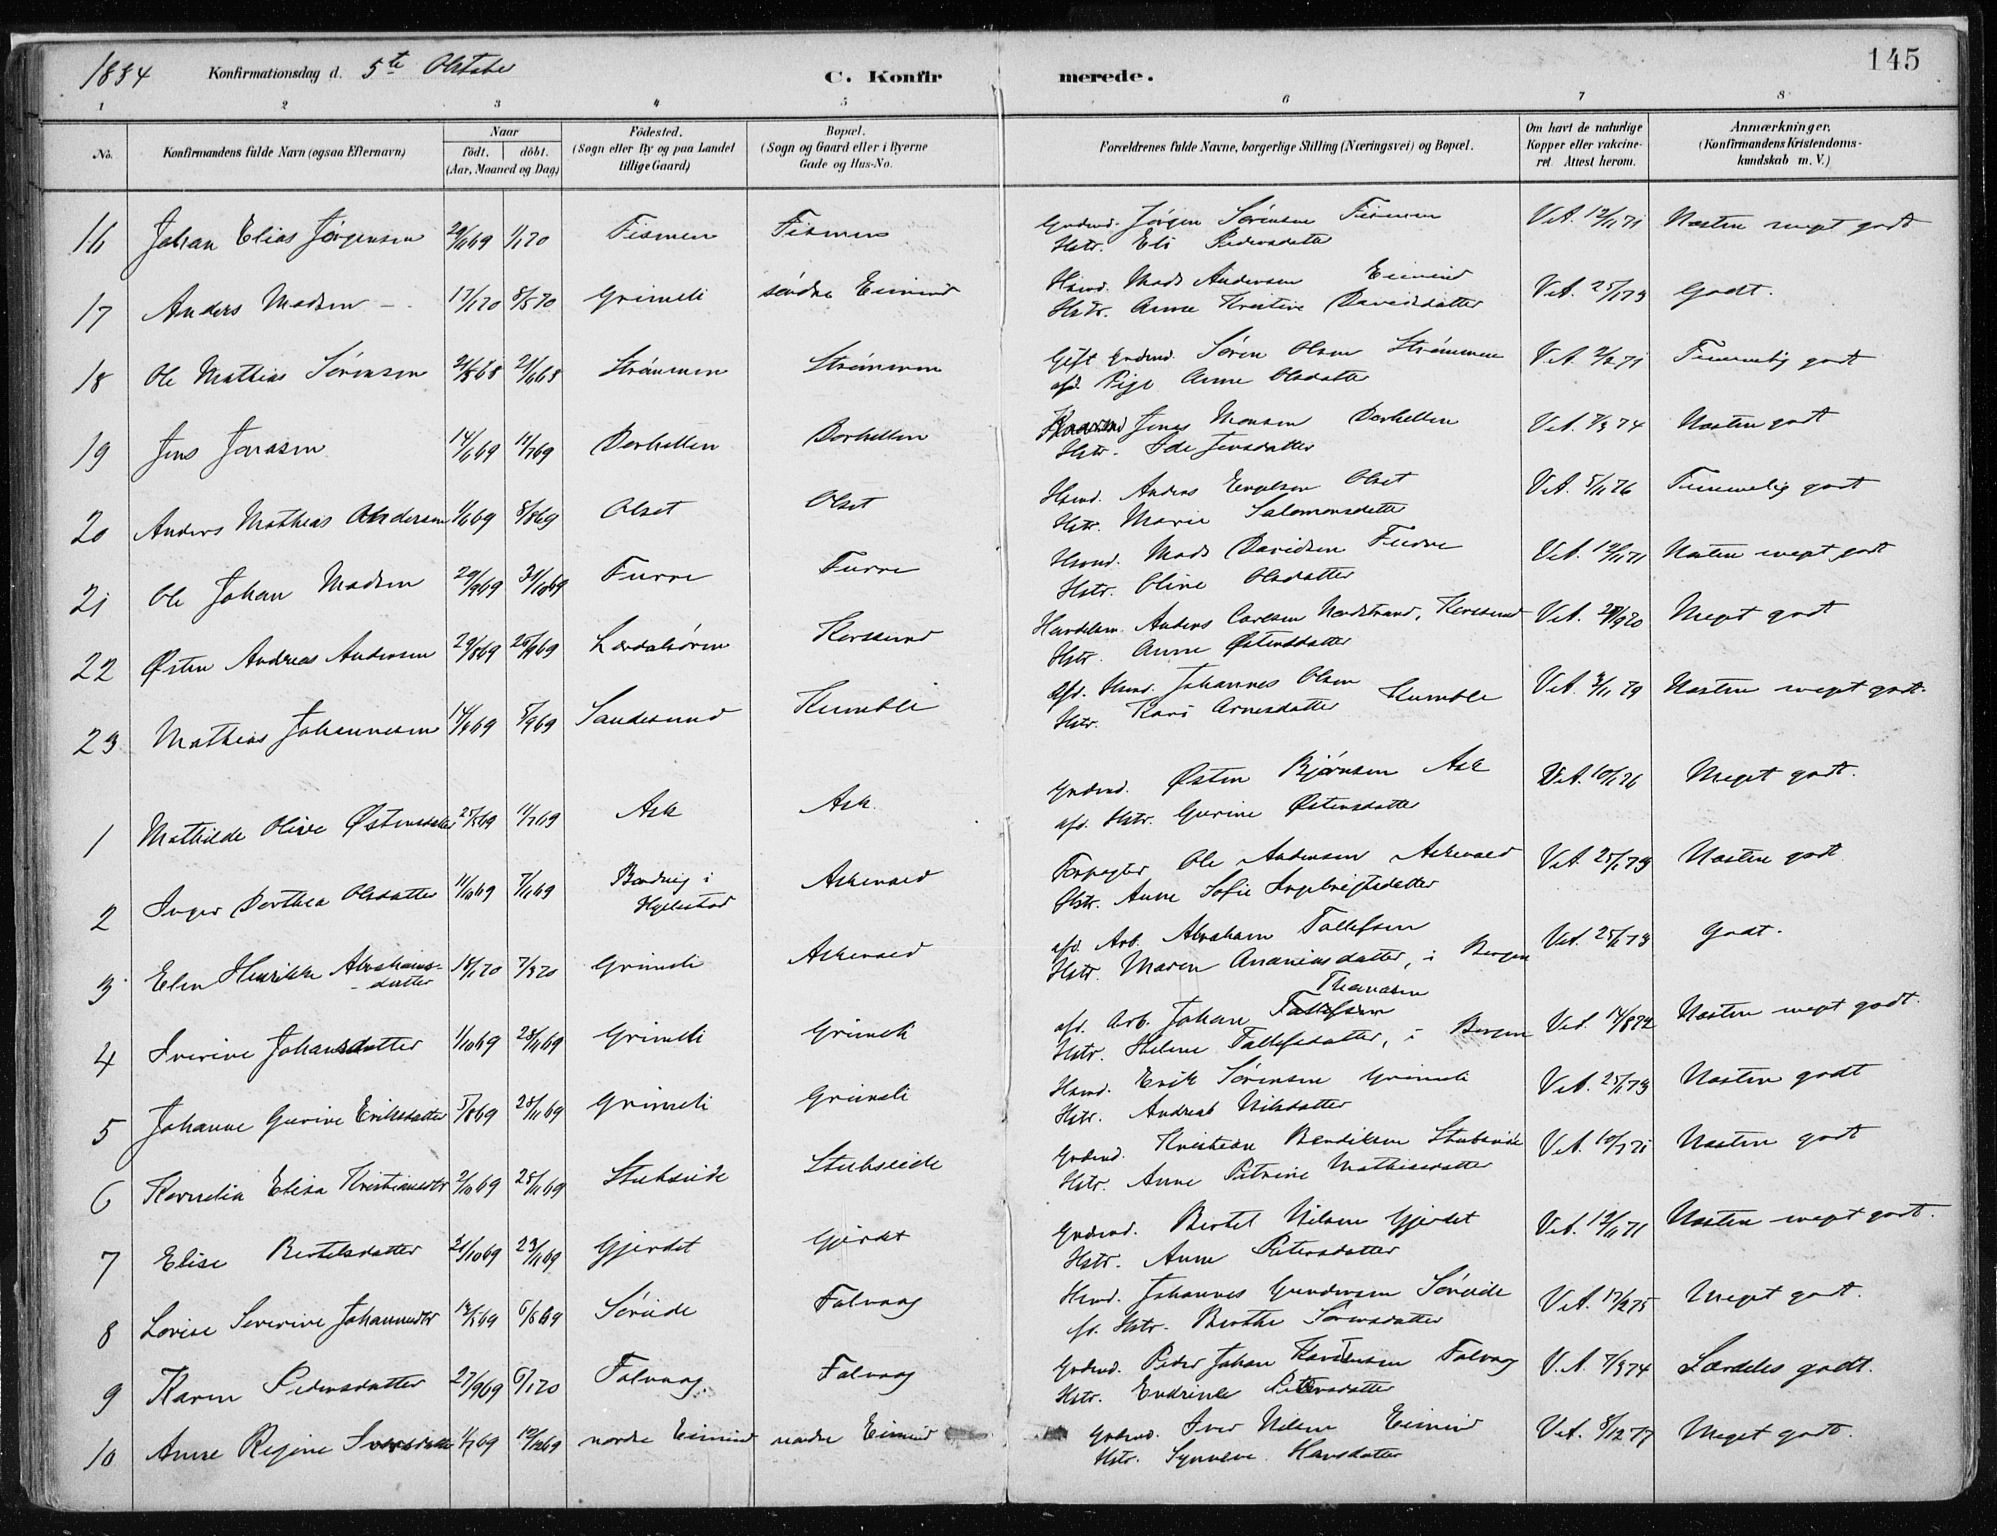 1884 Konfirmationsdag d. 5te Oktober C. Konfir merede. 145
1 2 3 4 5 6 7 8
No. Konfirmandens fulde Navn (ogsaa Efternavn) Naar födt. döbt. (Aar, Maaned og Dag) Födested. (Sogn eller By og paa Landet tillige Gaard) Bopæl. (Sogn og Gaard eller i Byerne Gade og Hus-No. Forældrenes fulde Navne, borgerlige Stilling (Næringsvei) og Bopæl. Om havt de naturlige Kopper eller vakcineret. Attest herom. Anmærkninger. (Konfirmandens Kristendomskundskab m. V.)
16 Johan Elias Jørgensen 1/1 70 Fismen Fismen Gndmd. Jørgen Sörensen Fismen V.A. 12/11 71 Næsten meget godt
Hstr. Eli Pedersdatter
17 Anders Madsen 17/1 70 8/5 70 Grimeli söndre Eimind Hsmd. Mads Andersen Eimind V.A. 25/1 73 Godt.
Hstr. Anne Kristine Davidsdatter
18 Ole Mathias Sörensen 21/6 68 Strömmen Strömmen Gift Gndmd. Sören Olsen Strömmen V.A. 2/2 71 Temmelig godt
Pige Anne Olsdatter
19 Jens Jonasen 14/6 69 11/7 69 Dorhellen Dorhellen Jonas Monsen Dorhellen V.A. 7/3 74 Næsten godt
Hstr. Ide Jensdatter
20 Anders Mathias Andersen 1/6 69 8/8 69 Olset Olset Hsmd. Anders Engelsen Olset V.A. 5/11 76 Temmelig godt
Hstr. Marie Salomonsdatter
21 Ole Johan Madsen 29/9 69 31/10 69 Furre Furre Hsmd. Mads Davidsen Furre V.A. 12/11 71 Næsten meget godt
Hstr. Oline Olsdatter
22 Østen Andreas Andersen 29/8 69 26/9 69 Lærdalsören Kersund Handelsm. Anders Carlsen Nordstrand, Kersund V.A. Meget godt
Hstr. Anne Østensdatter
23 Mathias Johannesen 5/9 69 Sandesund Humble afd. Hsmd. Johannes Olsen Humble V.A. 3/11 79 Næsten meget godt.
Hstr. Kari Arnesdatter
1 Mathilde Olive Østensdatter 25/5 69 11/7 69 Ask Ask. Gndmd. Østen Bjørnsen Ask V.A. 10/1 76 Meget godt.
afd. Hstr. Gurine Østensdatter
2 Inger Dorthea Olsdatter 11/10 69 7/11 69 Bondvig i Hyllestad Askevold Forpagter Ole Andersen Askevold V.A. 25/1 73 Næsten godt
Hstr. Anne Sofie Ingebrigtsdatter
3 Elen Henrikke Abrahams-datter 18/1 70 7/3 70 Grimeli Askevold afd. Arb. Abraham Tollefsen V.A. 25/1 73 Godt.
Hstr. Maren Ananiasdatter, i Bergen
4 Iverine Johansdatter 1/10 69 28/11 69 Grimeli Grimeli afd. Arb. Johan Thomasen V.A. 14/8 72 Næsten meget godt.
Hstr. Helene Tollefsdatter, i Bergen
5 Johanne Gurine Eriksdatter 5/8 69 28/11 69 Grimeli Grimeli Hsmd. Erik Sörensen Grimeli V.A. 25/1 73 Næsten godt
Hstr. Andrea Nilsdatter
6 Kornelia Elisa Kristiansdtr 2/10 69 28/11 69 Stubseide Stubseide Gndmd. Kristian Bendiksen Stubseide V.A. 10/7 71 Næsten godt
Hstr. Anne Petrine Mathiasdatter
7 Elise Bertelsdatter 21/10 69 23/11 69 Gjerdet Gjerdet Gndmd. Bertel Nilsen Gjerdet V.A. 12/11 71 Næsten meget godt.
Hstr. Anne Petersdatter
8 Lovise Severine Johannesdtr 13/5 69 6/8 69 Söreide Folvaag Hsmd. Johannes Gundersen Söreide V.A. 17/2 75 Meget godt.
Hstr. Berthe Sörensdatter
9 Karen Pedersdatter 27/9 69 6/1 70 Folvaag Folvaag Gndmd. Peder Johan Folvaag V.A. 7/3 74 Særdeles godt.
Hstr. Endrine Petersdatter
10 Anne Regine Iversdatter 1/7 69 12/12 69 nordre Eimind nordre Eimind Gndmd. Iver Nilsen Eimind V.A. 8/12 77 Meget godt.
Hstr. Synneve Hansdatter